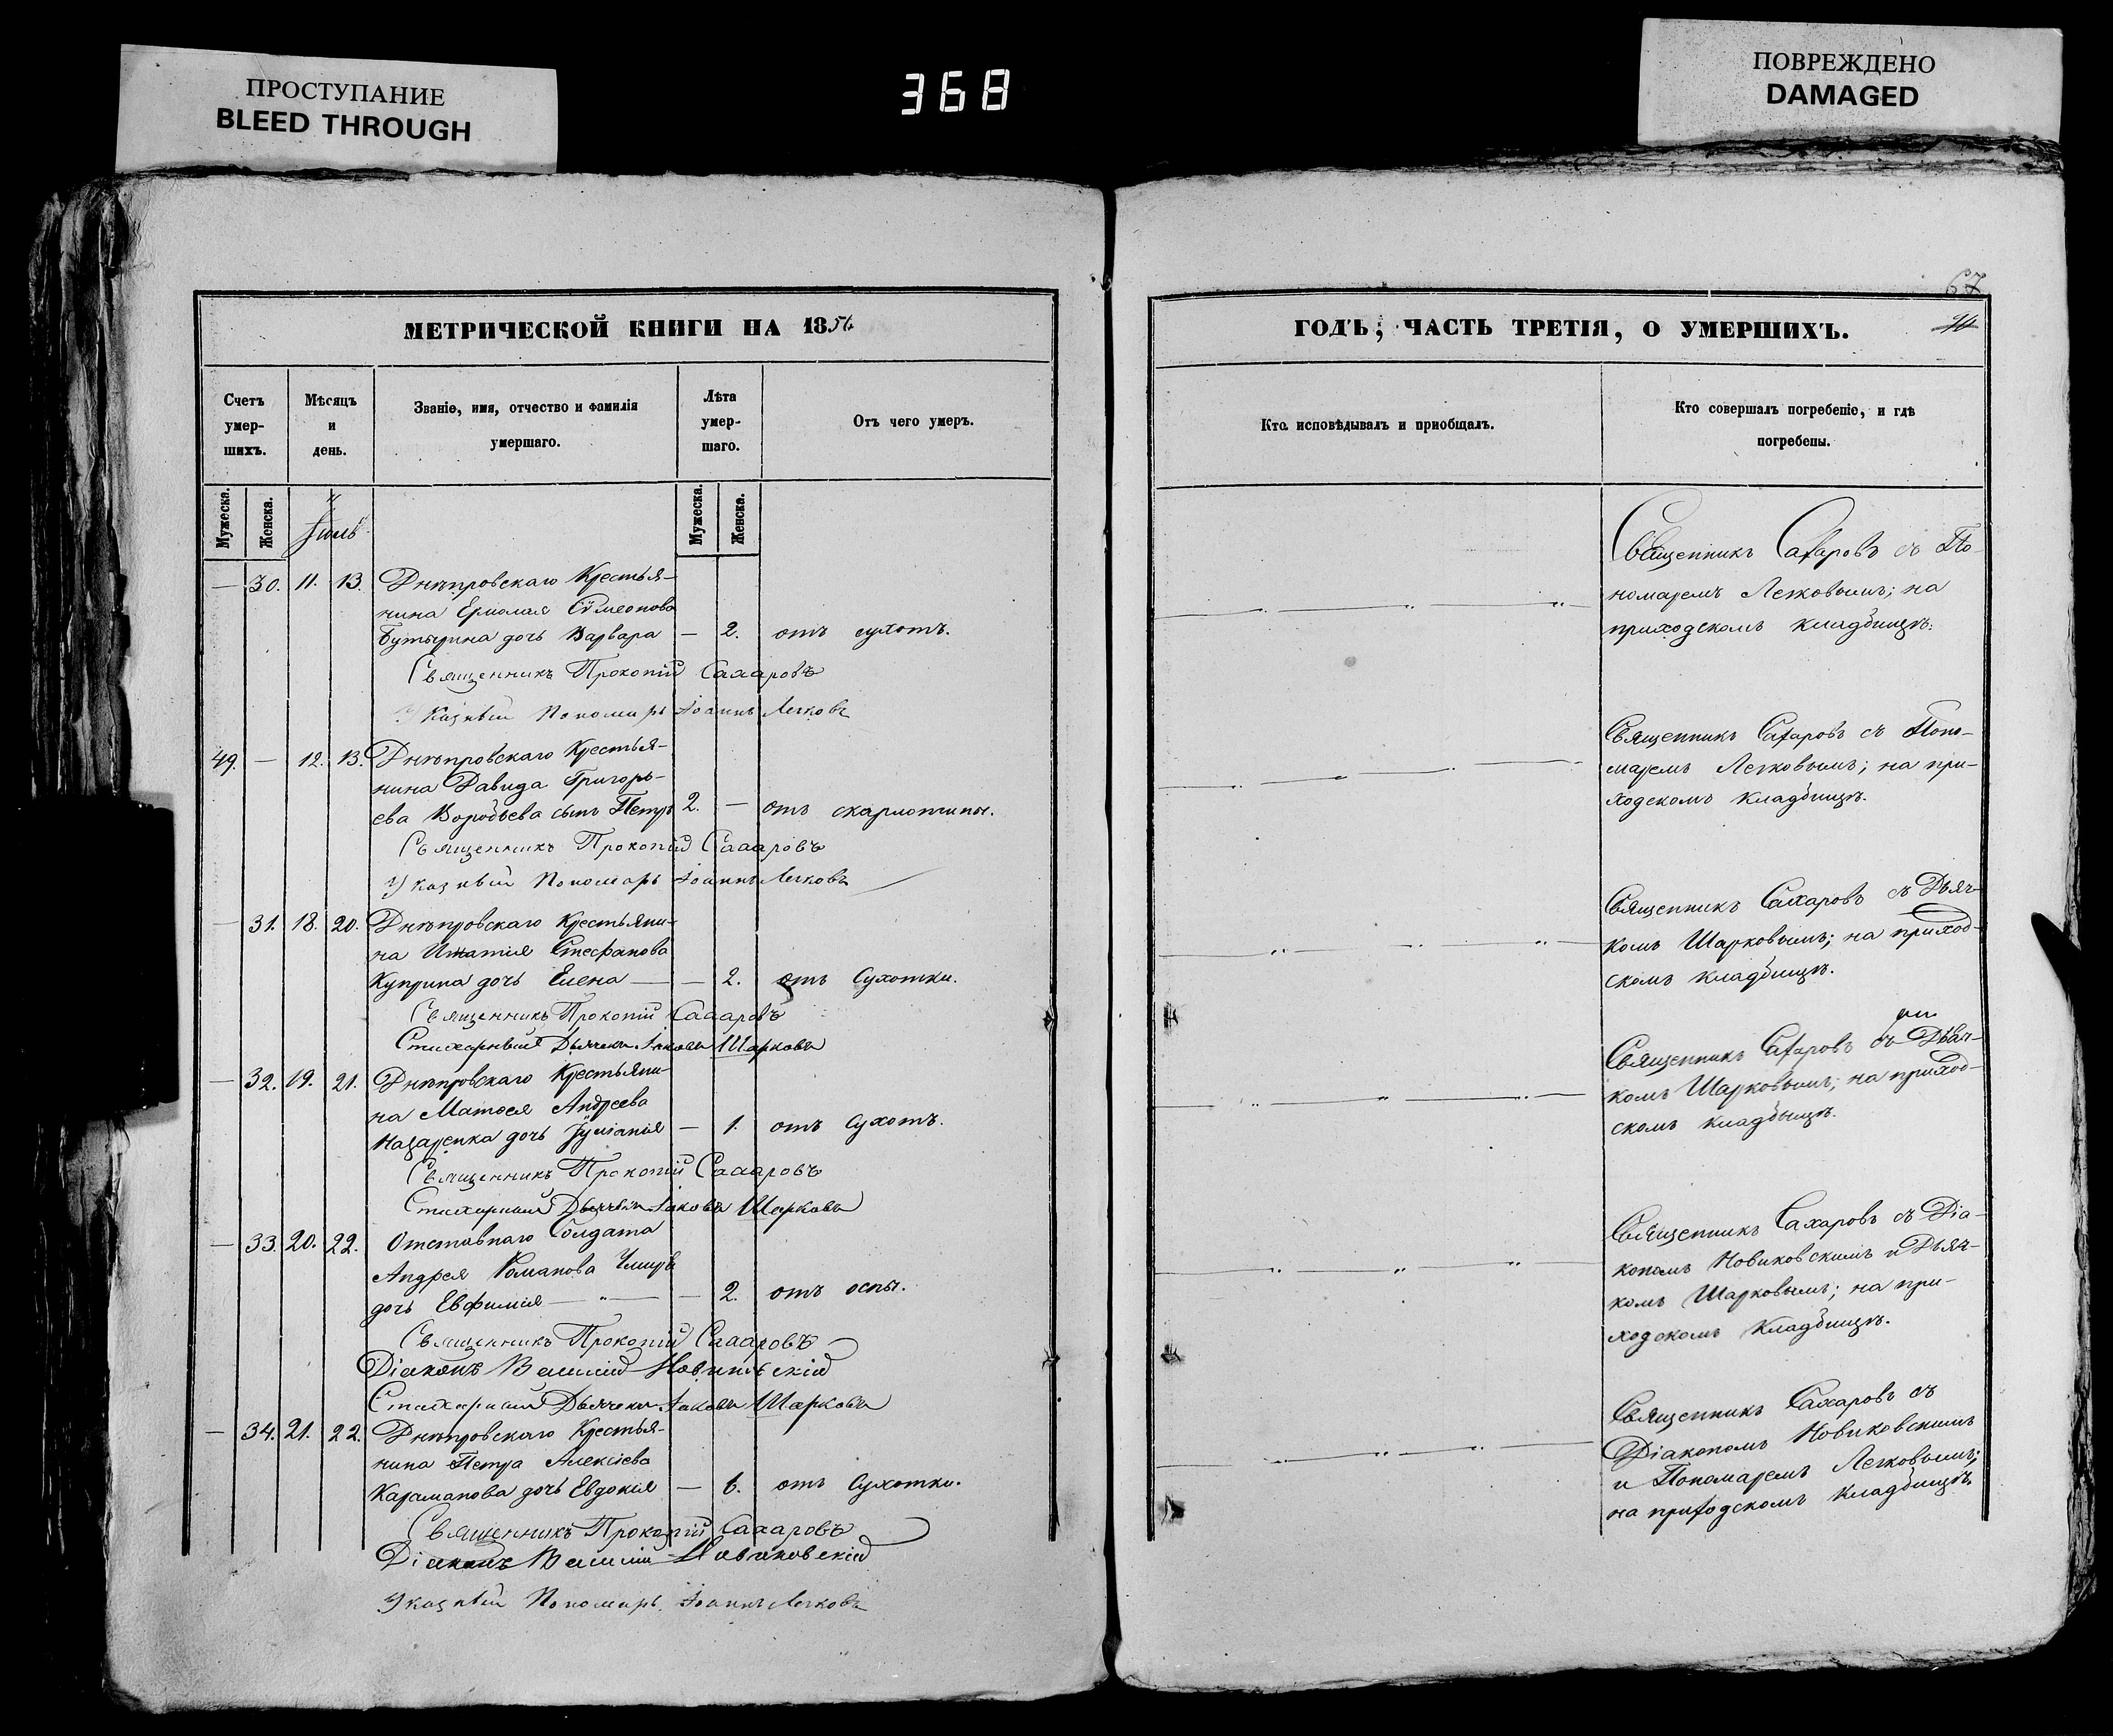 ПРОСТУПАНИЕ
BLEED THROUGH
368
ПОВРЕЖДЕНО
DAMAGED
МЕТРИЧЕСКОЙ КНИГИ НА 1856
Счетъ умер- шихъ.
Мѣсяцъ и день.
Званіе, имя, отчество и фамилія умершаго.
Лѣта умер- шаго.
Отъ чего умеръ.
Мужеска. Женска.
Іюль
Мужеска. Женска.
— 30. 11. 13. Днѣпровскаго Крестья-
нина Ермолая Сѵмеонова
Бутырина дочь Варвара — 2. отъ сухотъ.
Священникъ Прокопій Сахаровъ
Указный Пономарь Іоаннъ Легковъ
49. — 12. 13. Днѣпровскаго Крестья-
нина Давида Григорь-
ева Воробьева сынъ Петръ 2. — отъ скарлотины.
Священникъ Прокопій Сахаровъ
Указный Пономарь Іоаннъ Легковъ
— 31. 18. 20. Днѣпровскаго Крестьяни-
на Игнатія Стефанова
Куприна дочь Елена — — 2. отъ Сухотки.
Священникъ Прокопій Сахаровъ
Стихарный Дьячекъ Іаковъ Шарковъ
— 32. 19. 21. Днѣпровскаго Крестьяни-
на Матѳея Андреева
Назаренка дочь Іуліанія — 1. отъ Сухотъ.
Священникъ Прокопій Сахаровъ
Стихарный Дьячекъ Іаковъ Шарковъ
— 33. 20. 22. Отставнаго Солдата
Андрея Романова
дочь Евфимія — „ — — 2. отъ оспы.
Священникъ Прокопій Сахаровъ
Діаконъ Василій Новиковскій
Стихарный Дьячекъ Іаковъ Шарковъ
— 34. 21. 22. Днѣпровскаго Крестья-
нина Петра Алексіева
Караманова дочь Евдокія — 6. отъ Сухотки.
Священникъ Прокопій Сахаровъ
Діаконъ Василій Новиковскій
Указный Пономарь Іоаннъ Легковъ
67
ГОДЪ, ЧАСТЬ ТРЕТІЯ, О УМЕРШИХЪ.
Кто исповѣдывалъ и приобщалъ.
Кто совершалъ погребеніе, и гдѣ погребены.
Священникъ Сахаровъ съ По-
номаремъ Легковымъ; на
приходскомъ кладбищѣ.
Священникъ Сахаровъ съ Поно-
маремъ Легковымъ; на при-
ходскомъ Кладбищѣ.
Священникъ Сахаровъ съ Дьяч-
комъ Шарковымъ; на приход-
скомъ кладбищѣ.
Священникъ Сахаровъ съ Дьяч-
комъ Шарковымъ; на приход-
скомъ кладбищѣ.
Священникъ Сахаровъ съ Діа-
кономъ Новиковскимъ и Дьяч-
комъ Шарковымъ; на при-
ходскомъ Кладбищѣ.
Священникъ Сахаровъ съ
Діакономъ Новиковскимъ
и Пономаремъ Легковымъ;
на приходскомъ кладбищѣ.